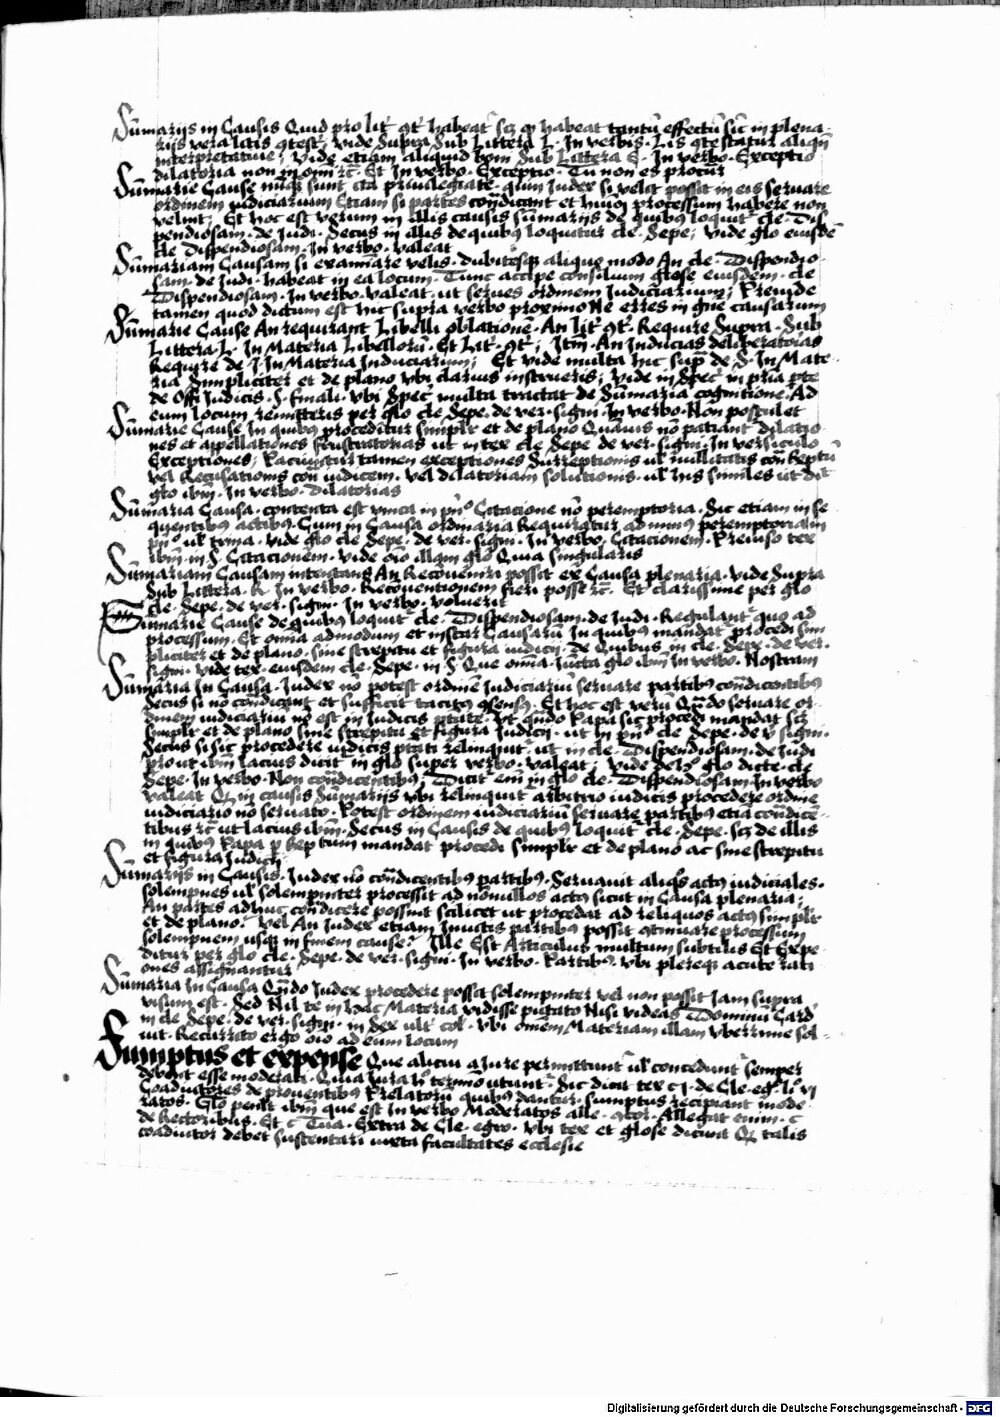 Sūmarijs in Causis Quid pro lit' ɋt' habeat' scʒ ɋ habeat tantū effectū sic' in plena
rijs vera litis ɋtest'. vide Supra Sub Littera L. In verbis. Lis ɋtestatur aliqñ
interpretative; Vide etiam aliquid boni Sub Littera E. In verbo. Exceptio
dilatoria non in om̄i ꝛc̄. Et In verbo. Exceptio. Tu non es procur̄
Sūmarie Cause nūqʒ sunt ita privilegiate. quin Iudex si velit possit in eis servare
ordinem iudiciarium Etiam si partes cōdicant et huiꝰ processum habere non
velint; Et hoc est verum in illis causis sūmarijs de quibꝰ loquit' cle. Dis
pendiosam. de Iudi. Secus in illis de quibꝰ loquitur cle. Sepe; vide glo eiusdē
cle Dispendiosam. In verbo. valeat
Sūmariam Causam si examinare velis. dubitesqʒ aliquo modo An cle. Dispendio
sam. de Iudi. habeat in ea locum. Tunc accipe consilium glose eiusdem. cle
Dispendiosam. In verbo. valeat. ut serves ordinem Iudiciarium; Provide
tamen quod dictum est hic supra verbo proximo Ne erres in gn̄e causarum
Sūmarie Cause An requirant Libelli oblationē. An lit' ɋt'. Require Supra. Sub
Littera. L. In Materia Libellorū. Et Lit'. ɋt'; Itm̄. An Inducias deliberatorias
Require de I. In Materia Induciarum; Et vide multa hic sup̄ de. S. In Mate
ria Simpliciter et de plano ubi clarius instrueris; Vide in Spec' in pria pte
de Offi Iudicis. §. finali. ubi Spec' multa tractat de Sūmaria cognitione. Ad
eum locum remitteris per glo cle Sepe. de ver. signi. In verbo. Non postulet
Sūmarie Cause In quibꝰ proceditur simplr et de plano Quāvis nō patiant' dilatio
nes et appellationes frustratorias ut in tex cle Sepe de ver. signi. In versiculo
Exceptiones; tamen exceptiones Surreptionis ul' nullitatis con̄
vel Recusationis con̄ iudicem. vel dilatoriam solutionis. ul' his similes ut dic̄
glo ibm̄. In verbo. Dilatorias
Sūmaria Causa. contenta est unica in pn̄° Citacione nō peremptoria. Sic etiam in se
quentibꝰ actibꝰ. Cum in Causa ordinaria Requiratur ad minꝰ peremptoria in
pn̄° ul' trina. vide glo cle Sepe. de ver. signi. In verbo. Citacionem. Previso tex
ibm̄ in §. Citacionem. vide oīo illam glo Quia singularis
Sūmariam Causam intentans An Reconveniri possit ex Causa plenaria. vide Supra
Sub Littera. R In verbo. Reconventionem fieri posse ꝛc̄. Et clarissime per glo
cle. Sepe. de ver. signi. In verbo. voluerit
Sūmarie Cause de quibꝰ loquit' cle. Dispendiosam. de Iudi. Regulant' quo ad
processum. Et om̄ia admodum et instar Causarū In quibꝰ mandat' procedi sim
pliciter et de plano. sine strepitu et figura iudicij. De Quibus in cle. Sepe. de ver.
signi. vide tex. eiusdem cle. Sepe. in §. Que om̄ia. Iuncta glo ibm̄ In verbo. Nostram
Sūmaria In Causa. Iudex nō potest ordinē Iudiciariū servare partibꝰ cōdicentibꝰ
Secus si nō cōdicant et sufficit tacitꝰ ɋsensꝰ. Et hoc est verū Qn̄do servare or
dinem iudiciariū nō est in Iudicis ptāte. Ut qn̄do Papa sic procedi mandat scʒ
simplr et de plano sine strepitu et figura Iudicij. ut In pn̄° cle Sepe. de ꝟ. signi.
Secus si sic procedere iudicis ptāti relinquit'. ut in cle. Dispendiosam. de Iudi
prout ibm̄ lacius dicit' in glo super verbo. valeat; Vide de h° glo dicte. cle
Sepe. In verbo. Non cōdicentibꝰ; Dicit enī in glo cle. Dispendiosam. In verbo
valeat Qꝫ in causis Sūmarijs ubi relinquit' arbitrio iudicis procedere ordine
iudiciario nō servato. Potest ordinem iudiciariū servare partibꝰ etiā cōdicē
tibus ꝛc̄ ut lacius ibm̄. Secus in Causis de quibꝰ loquit' cle. Sepe. scʒ de illis
in quibꝰ Papa p mandat procedi simplr et de plano ac sine strepitu
et figura Iudicij
Sūmarijs in Causis. Iudex nō cōdicentibꝰ partibꝰ. Servavit aliqºs actꝰ iudiciales.
solempnes ul' solempniter processit ad nonullos actꝰ sicut in Causa plenaria;
An partes adhuc cōdicere possint scilicet ut procedat ad reliquos actꝰ simplr
et de plano? vel An Iudex etiam Invitis partibꝰ possit ɋtinuare processum
solempnem usqʒ in finem cause? Ille Est Articulus multum subtilis Et Expe
ditur per glo cle. Sepe. de ver. signi. In verbo. Partibꝰ. ubi plereqʒ acute rati
ones assignantur
Sūmaria In Causa Qn̄do Iudex procedere possit solempniter vel non possit Iam supra
visum est. Sed Nil te in hac Materia vidisse putato Nisi videas Dominū Card
in cle Sepe. de ver. signi. in Sex ult' col'. ubi om̄em Materiam illam uberrime sol
vit. Recurrito ergo oīo ad eum locum
Sumptus et expense Que alicui a iure permittunt' ul' concedunt' semper
debent esse moderati. Quia iura h° termīo utunt'. Sic dicit tex c j. de Cle. eg'. l° vj
Coadiutores de proventibus Prelatorū quibꝰ dantur. sumptus recipiant mode
ratos. Glo penlt' ibm̄ que est In verbo Moderatos alle. Allegat enim. c
de Rectoribus. Et c Tua. Extra de Cle. egro. Ubi tex et glose dicunt Qꝫ talis
coadiutor debet sustentari iuxta facultates ecclesie
Digitalisierung gefördert durch die Deutsche Forschungsgemeinschaft - DFG